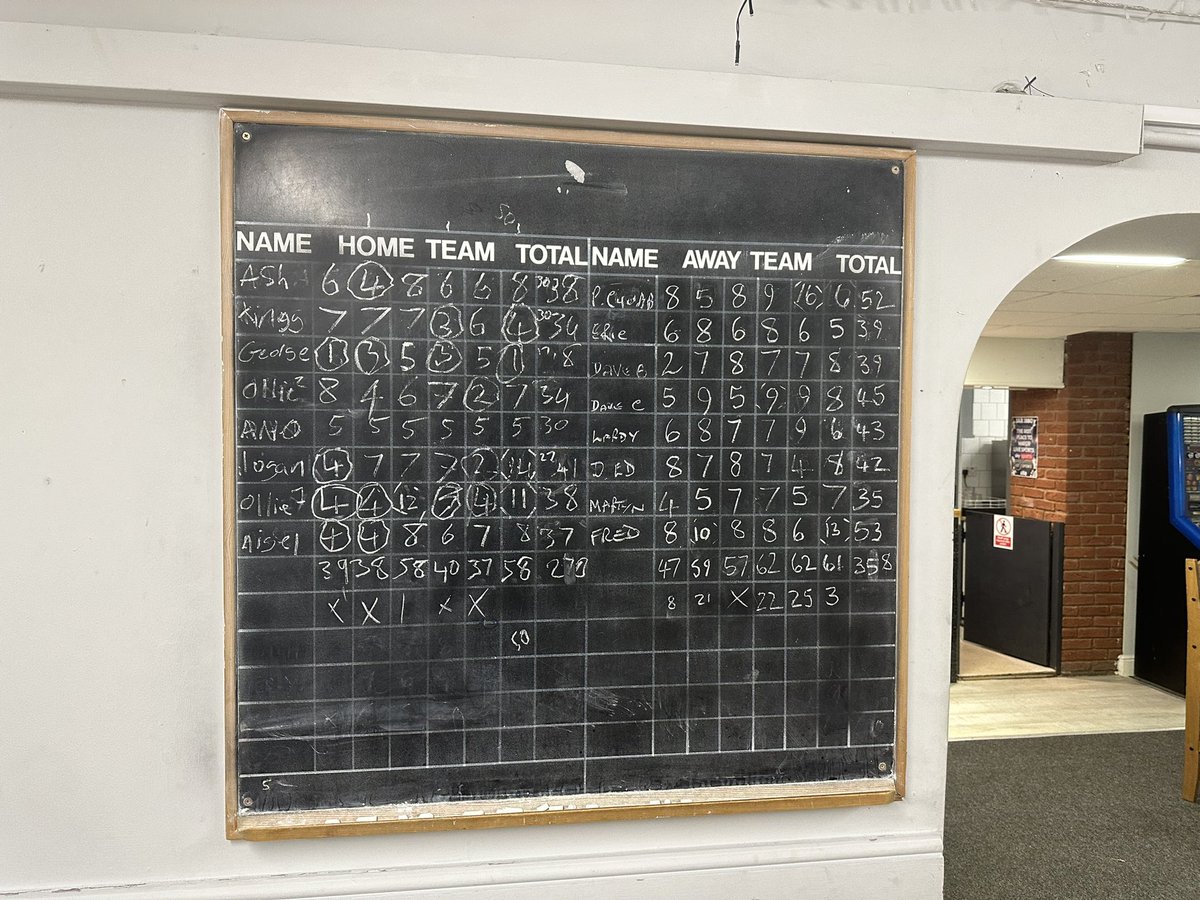 NAME HOME TEAM TOTAL NAME AWAY TEAM TOTAL
ASh 6 4 8 6 6 8 30 38 8 5 8 9 16 6 52
7 7 7 3 6 4 30 34 ERIC 6 8 6 8 6 5 39
George 1 3 5 3 5 1 18 DAVE B 2 7 8 7 7 8 39
Ollie 2 8 4 6 7 2 7 34 DAVE C 5 9 5 9 9 8 45
ANO 5 5 5 5 5 5 30 6 8 7 7 9 6 43
logan 4 7 7 7 2 14 27 41 J. ED 8 7 8 7 4 8 42
Ollie 1 4 4 12 3 4 11 38 MARTYN 4 5 7 7 5 7 35
Nigel 4 4 8 6 7 8 37 FRED 8 10 8 8 6 13 53
39 38 58 40 37 58 270 47 59 57 62 62 61 358
X X 1 X X 8 21 X 22 25 3
5